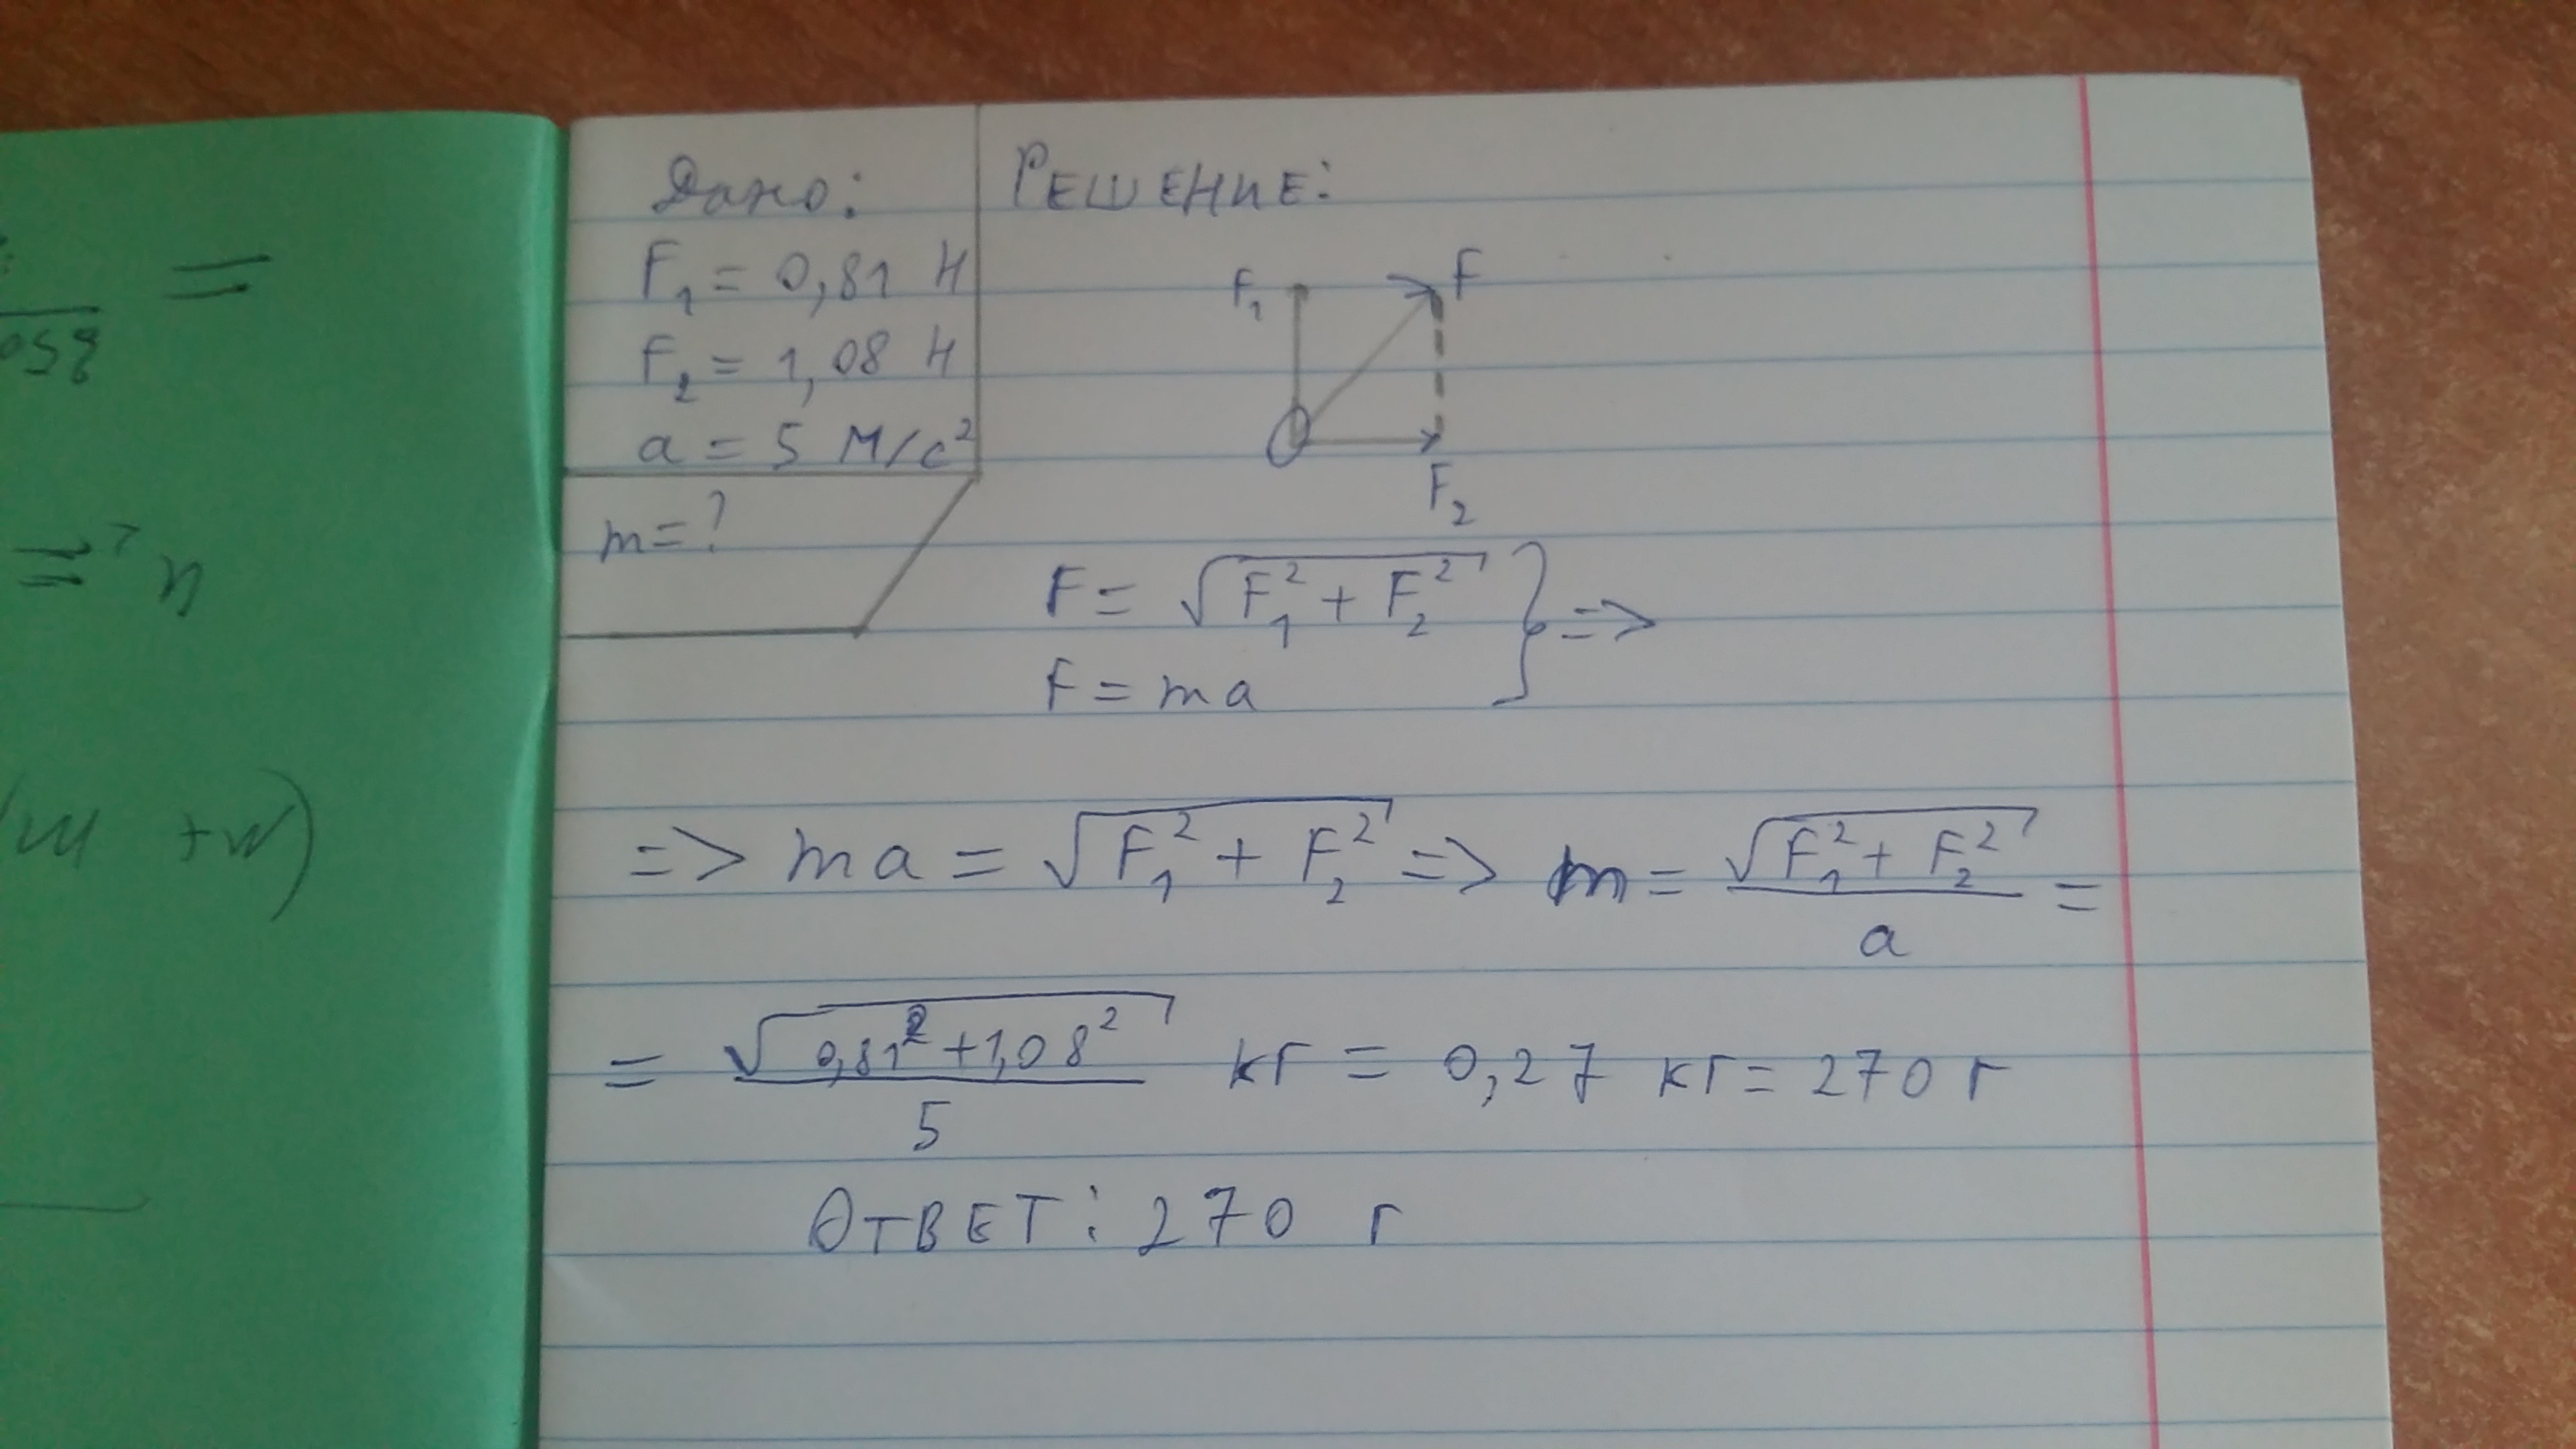 Дано:
F₁ = 0,81 Н
F₂ = 1,08 Н
a = 5 М/с²
m = ?
РЕШЕНИЕ:
F₁ F
F₂
F = √(F₁² + F₂²) } =>
F = ma
=> ma = √(F₁² + F₂²) => m = √(F₁² + F₂²) / a =
= √(0,81² + 1,08²) / 5 кг = 0,27 кг = 270 г
ОТВЕТ: 270 г